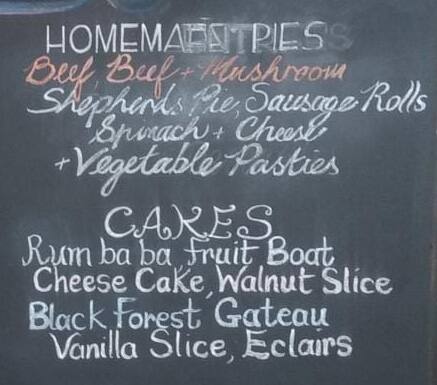 HOMEMA PIES
Beef, Beef + Mushroom
Shepherds Pie, Sausage Rolls
Spinach + Cheese
+ Vegetable Pasties
CAKES
Rum ba ba, fruit Boat
Cheese Cake, Walnut Slice
Black Forest Gateau
Vanilla Slice, Eclairs